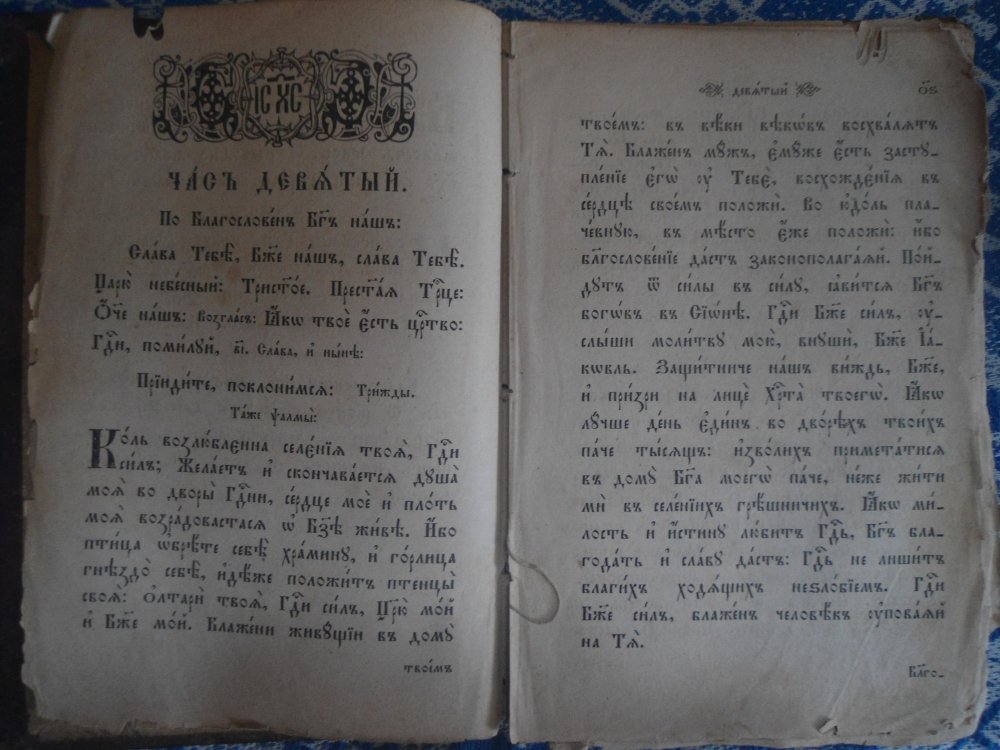 І҆С ХС
ЧА́СЪ ДЕВѦ́ТЫЙ.
По Благослове́нъ Бг҃ъ на́шъ:
Сла́ва Тебѣ̀, Бж҃е на́шъ, сла́ва Тебѣ̀.
Царю̀ небе́сный: Трист҃о́е. Прест҃а́ѧ Трⷪ҇це:
Ѻ҆́ч҃е на́шъ: Возгла́съ: Ꙗ҆́кѡ твоѐ є҆́сть црⷭ҇тво:
Гдⷭ҇и, поми́луй, в҃і. Сла́ва, и҆ ны́нѣ:
Прїиди́те, поклони́мсѧ: Три́жды.
Та́же ѱалмы̀:
Ко́ль возлю́бленна селе́нїѧ твоѧ̑, Гдⷭ҇и
си́лъ; Жела́етъ и҆ сконча́ваетсѧ дꙋша̀
моѧ̀ во дворы̀ Гдⷭ҇ни, се́рдце моѐ и҆ пло́ть
моѧ̀ возра́довастасѧ ѡ҆ Бз҃ѣ жи́вѣ. И҆́бо
пти́ца ѡ҆брѣ́те себѣ̀ хра́минꙋ, и҆ го́рлица
гнѣздо̀ себѣ̀, и҆дѣ́же положи́тъ птенцы̀
своѧ̑: Ѻ҆лтари̑ твоѧ̑, Гдⷭ҇и си́лъ, Цр҃ю̀ мо́й
и҆ Бж҃е мо́й. Блаже́ни живꙋ́щїи въ домꙋ̀
твое́мъ
девѧ́тый
о҃ѕ
твое́мъ: въ вѣ́ки вѣкѡ́въ восхва́лѧтъ
Тѧ̀. Блаже́нъ мꙋ́жъ, є҆мꙋ́же є҆́сть застꙋ-
пле́нїе є҆гѡ̀ ᲂу҆ Тебє̀, восхождє́нїѧ въ
се́рдцѣ свое́мъ положѝ. Во ю҆до́ль пла-
че́внꙋю, въ мѣ́сто є҆́же положѝ: и҆́бо
блгⷭ҇ове́нїе да́стъ законополага́ѧй. По́й-
дꙋтъ ѿ си́лы въ си́лꙋ, ꙗ҆ви́тсѧ Бг҃ъ
богѡ́въ въ Сїѡ́нѣ. Гдⷭ҇и Бж҃е си́лъ, ᲂу҆-
слы́ши моли́твꙋ мою̀, внꙋшѝ, Бж҃е І҆а́-
кѡвль. Защи́тниче на́шъ ви́ждь, Бж҃е,
и҆ при́зри на лицѐ Хрⷭ҇та̀ твоегѡ̀. Ꙗ҆́кѡ
лꙋ́чше де́нь є҆ди́нъ во дво́рѣхъ твои́хъ
па́че ты́сѧщъ: и҆зво́лихъ примета́тисѧ
въ домꙋ̀ Бг҃а моегѡ̀ па́че, не́же жи́ти
мѝ въ селе́нїихъ грѣ́шничихъ. Ꙗ҆́кѡ ми́-
лость и҆ и҆́стинꙋ лю́битъ Гдⷭ҇ь, Бг҃ъ бла-
года́ть и҆ сла́вꙋ да́стъ: Гдⷭ҇ь не лиши́тъ
благи́хъ ходѧ́щихъ неѕло́бїемъ. Гдⷭ҇и
Бж҃е си́лъ, блаже́нъ человѣ́къ ᲂу҆пова́ѧй
на Тѧ̀.
Блг҃о-